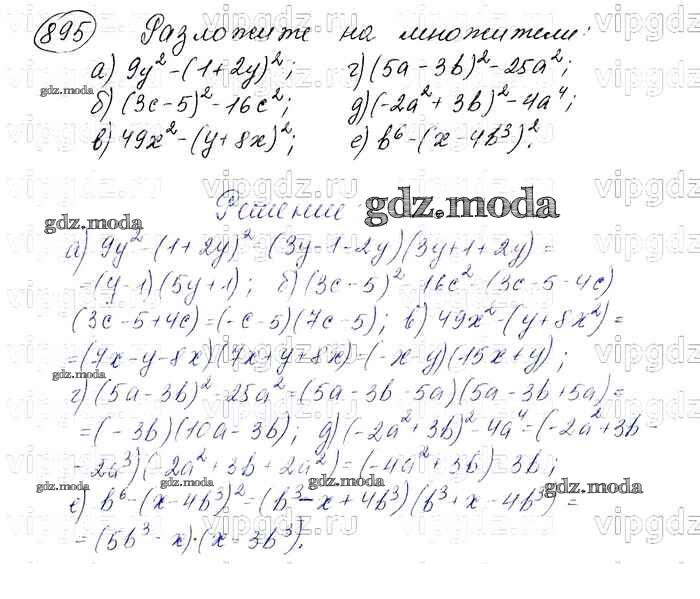 895 Разложите на множители:
а) 9y² - (1 + 2y)²; г) (5a - 3b)² - 25a²;
gdz.moda
б) (3c - 5)² - 16c²; д) (-2a² + 3b)² - 4a⁴;
в) 49x² - (y + 8x)²; е) b⁶ - (x - 4b³)².
Решение:
gdz.moda
gdz.moda
а) 9y² - (1 + 2y)² = (3y - 1 - 2y)(3y + 1 + 2y) =
= (y - 1)(5y + 1); б) (3c - 5)² - 16c² = (3c - 5 - 4c)
(3c - 5 + 4c) = (-c - 5)(7c - 5); в) 49x² - (y + 8x²) =
= (7x - y - 8x)(7x + y + 8x) = (-x - y)(15x + y);
gdz.moda
г) (5a - 3b)² - 25a² = (5a - 3b - 5a)(5a - 3b + 5a) =
= (-3b)(10a - 3b); д) (-2a² + 3b)² - 4a⁴ = (-2a² + 3b -
- 2a³)(-2a² + 3b + 2a²) = (-4a² + 3b) 3b;
gdz.moda gdz.moda gdz.moda
е) b⁶ - (x - 4b³)² = (b³ - x + 4b³)(b³ + x - 4b³) =
= (5b³ - x)·(x - 3b³).
vipgdz.ru